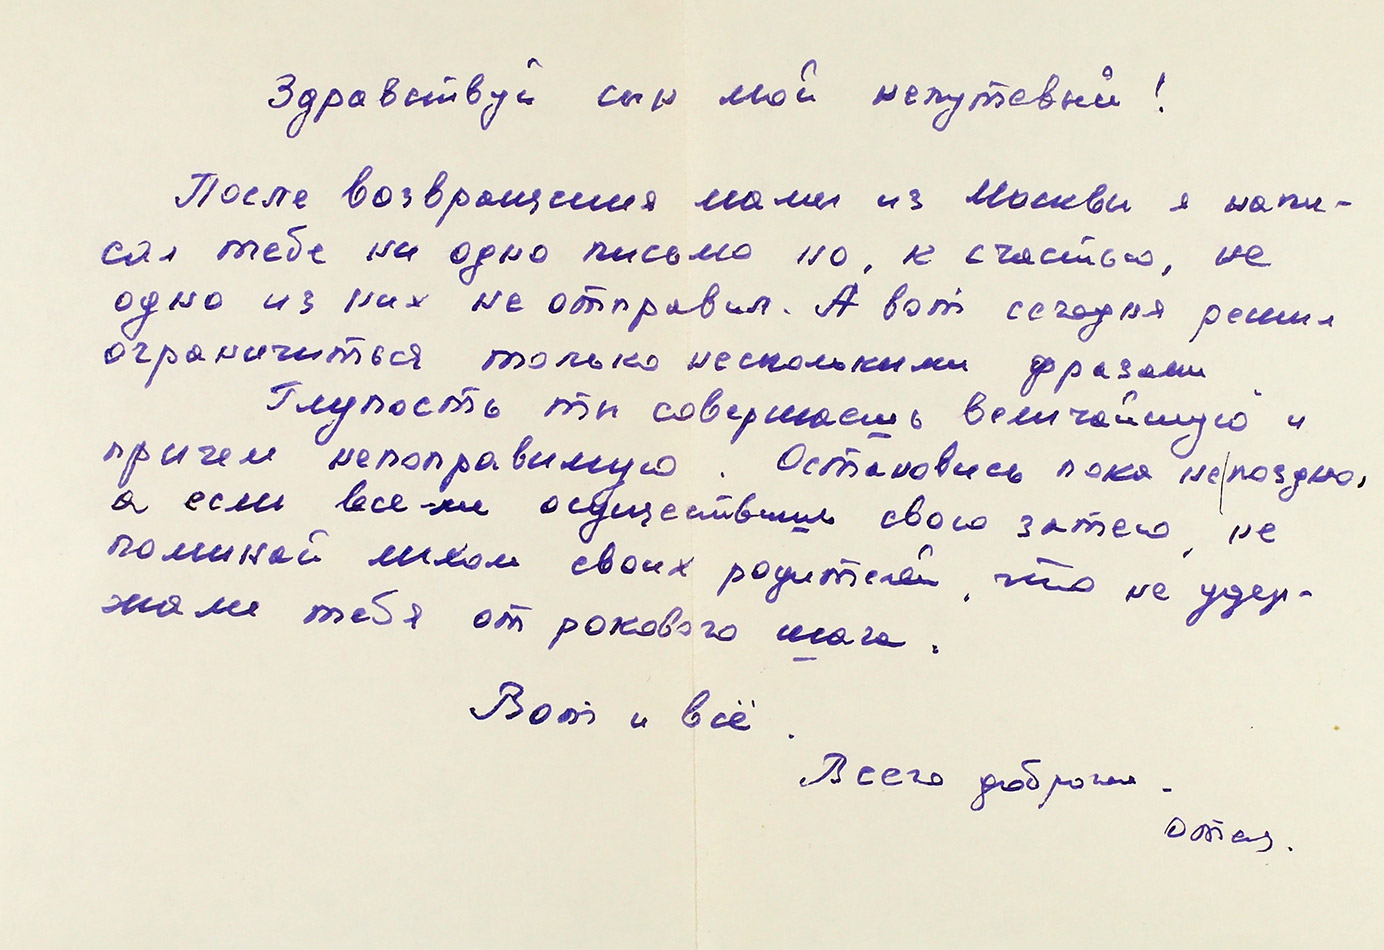 Здравствуй сын мой непутевый!
После возвращения мамы из Москвы я напи-
сал тебе ни одно письмо но, к счастью, не
одно из них не отправил. А вот сегодня решил
ограничиться только несколькими фразами
Глупость ты совершаешь величайшую и
причем непоправимую. Остановись пока не|поздно,
а если все-ли осуществишь свою затею, не
поминай лихом своих родителей, что не удер-
жали тебя от рокового шага.
Вот и всё.
Всего доброго.
Отец.